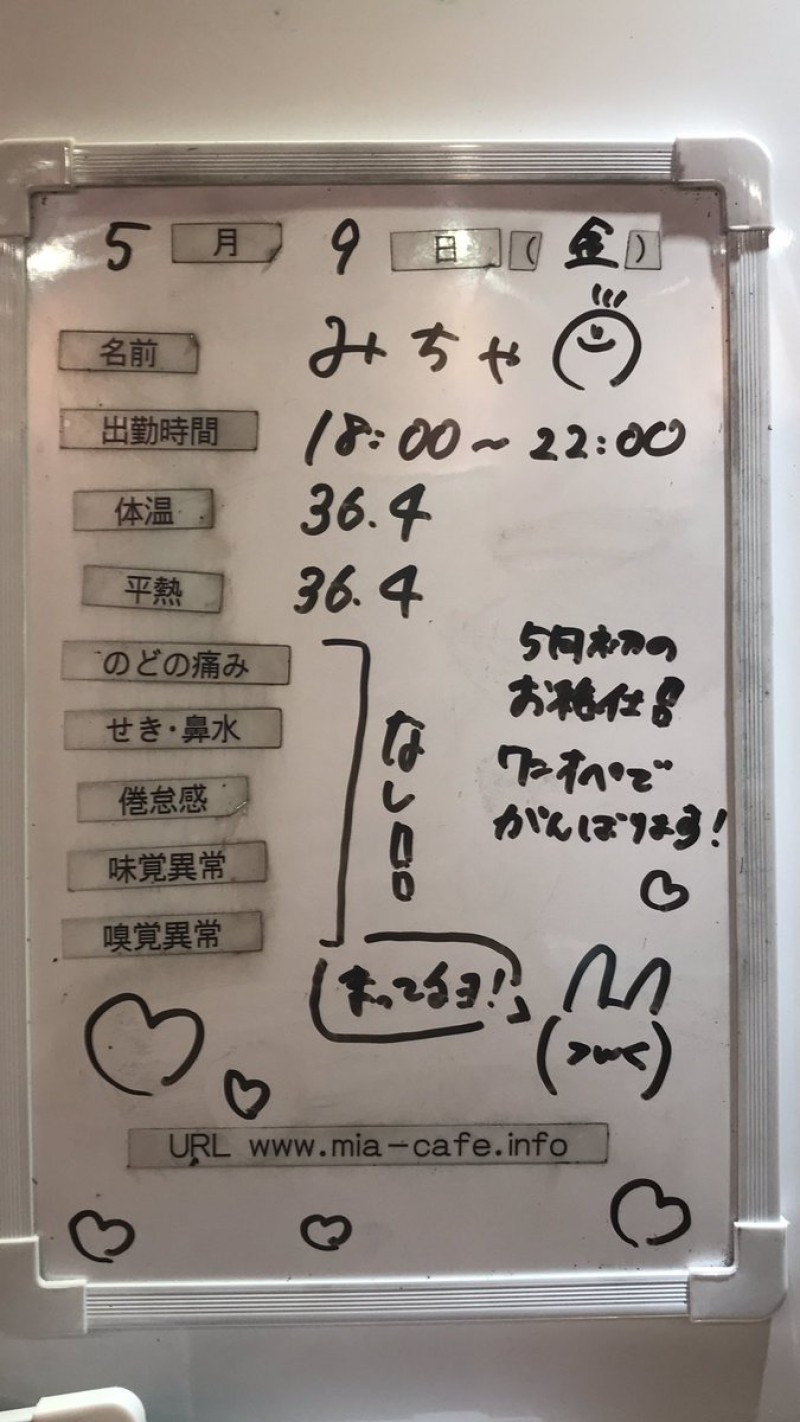 5月9日(金)
名前 みちゃ
出勤時間 18:00~22:00
体温 36.4
平熱 36.4
のどの痛み
せき・鼻水
倦怠感
味覚異常
嗅覚異常
なし!!
5月初の
お給仕!!
ワンオペで
がんばります!
まってるヨ!
(>ω<)
URL www.mia-cafe.info